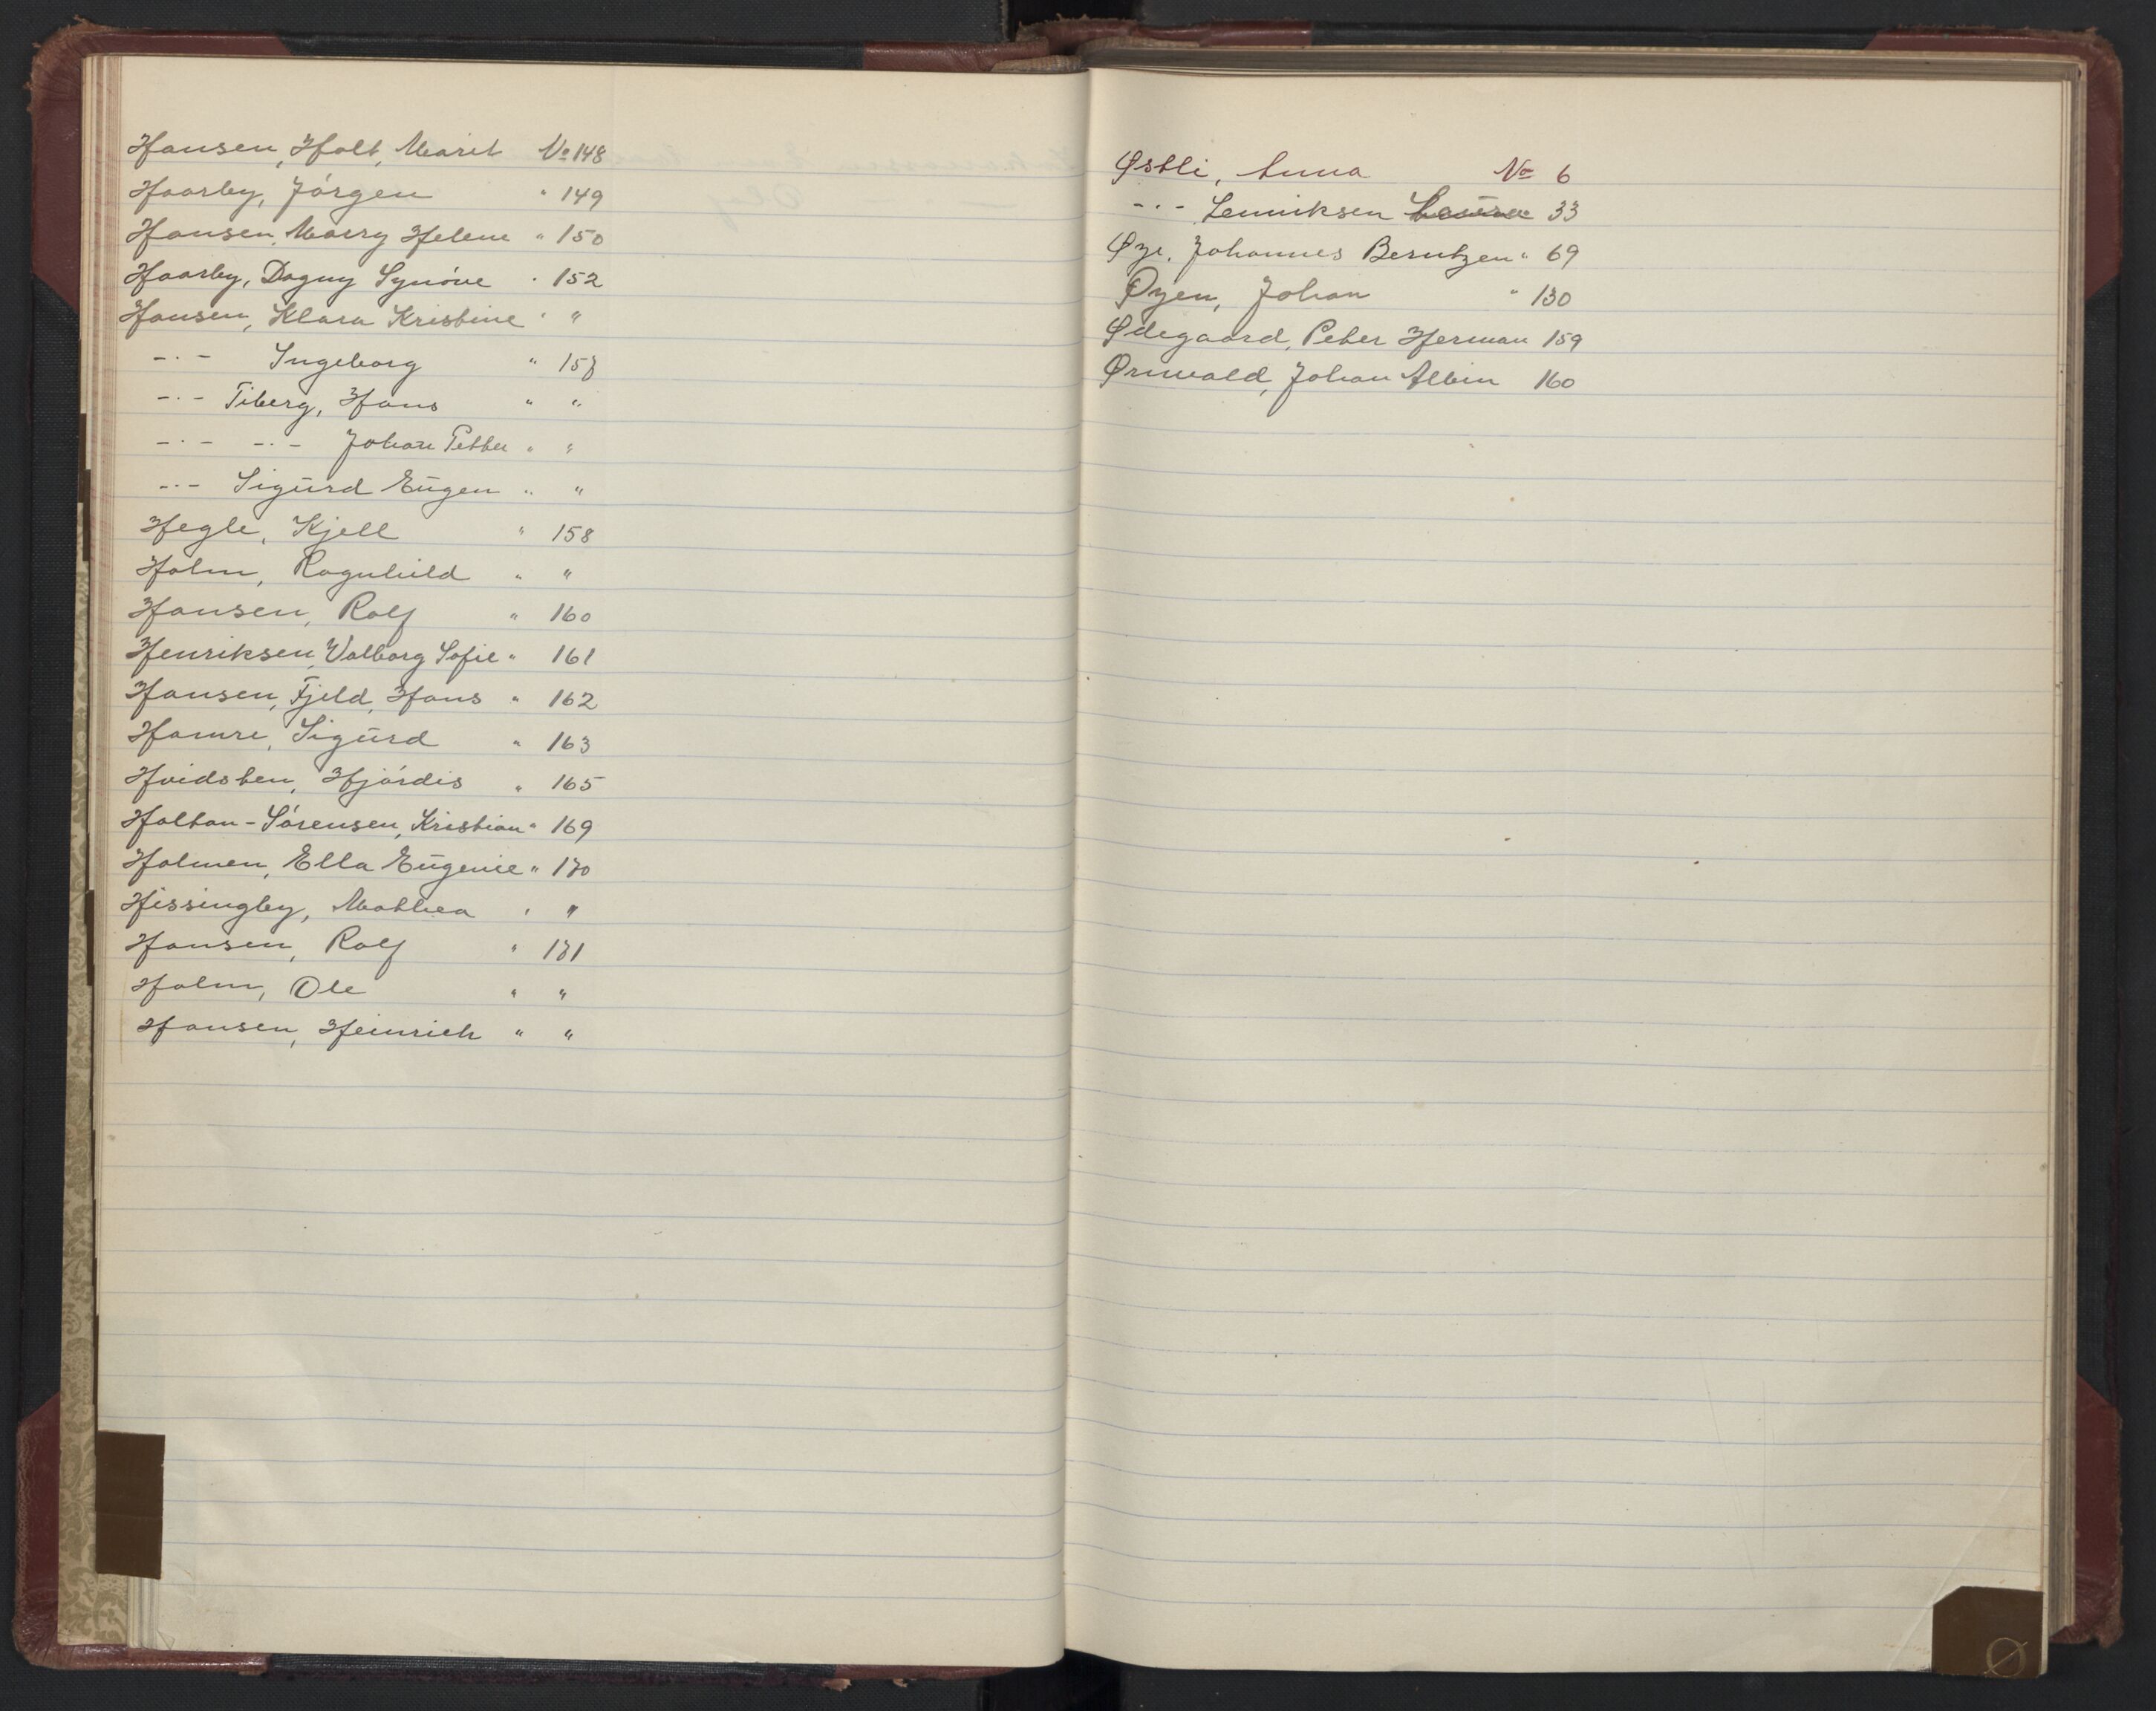 Hansen, Holt, Marit No 148
Haarby, Jörgen " 149
Hansen, Marry Helene " 150
Haarby, Dagny Synöve " 152
Hansen, Klara Kristine " "
-"- Ingeborg " 157
-"- Tiberg, Hans " "
-"- -"- Johan Petter " "
-"- Sigurd Eugen " "
Hegle, Kjell " 158
Holm, Ragnhild " "
Hansen, Rolf " 160
Henriksen, Valborg Sofie " 161
Hansen, Fjeld, Hans " 162
Hamre, Sigurd " 163
Hvidsten, Hjördis " 165
Holtan-Sörensen, Kristian " 169
Holmen, Ella Eugenie " 170
Hissingby, Mathea " "
Hansen, Rolf " 171
Holm, Ole " "
Hansen, Heinrich " "
Østli, Anna No 6
-"- Lenniksen Laura 33
Øye, Johannes Berntzen " 69
Øyen, Johan " 130
Ødegaard, Peter Herman 159
Ørnvald, Johan Albin 160
Ø